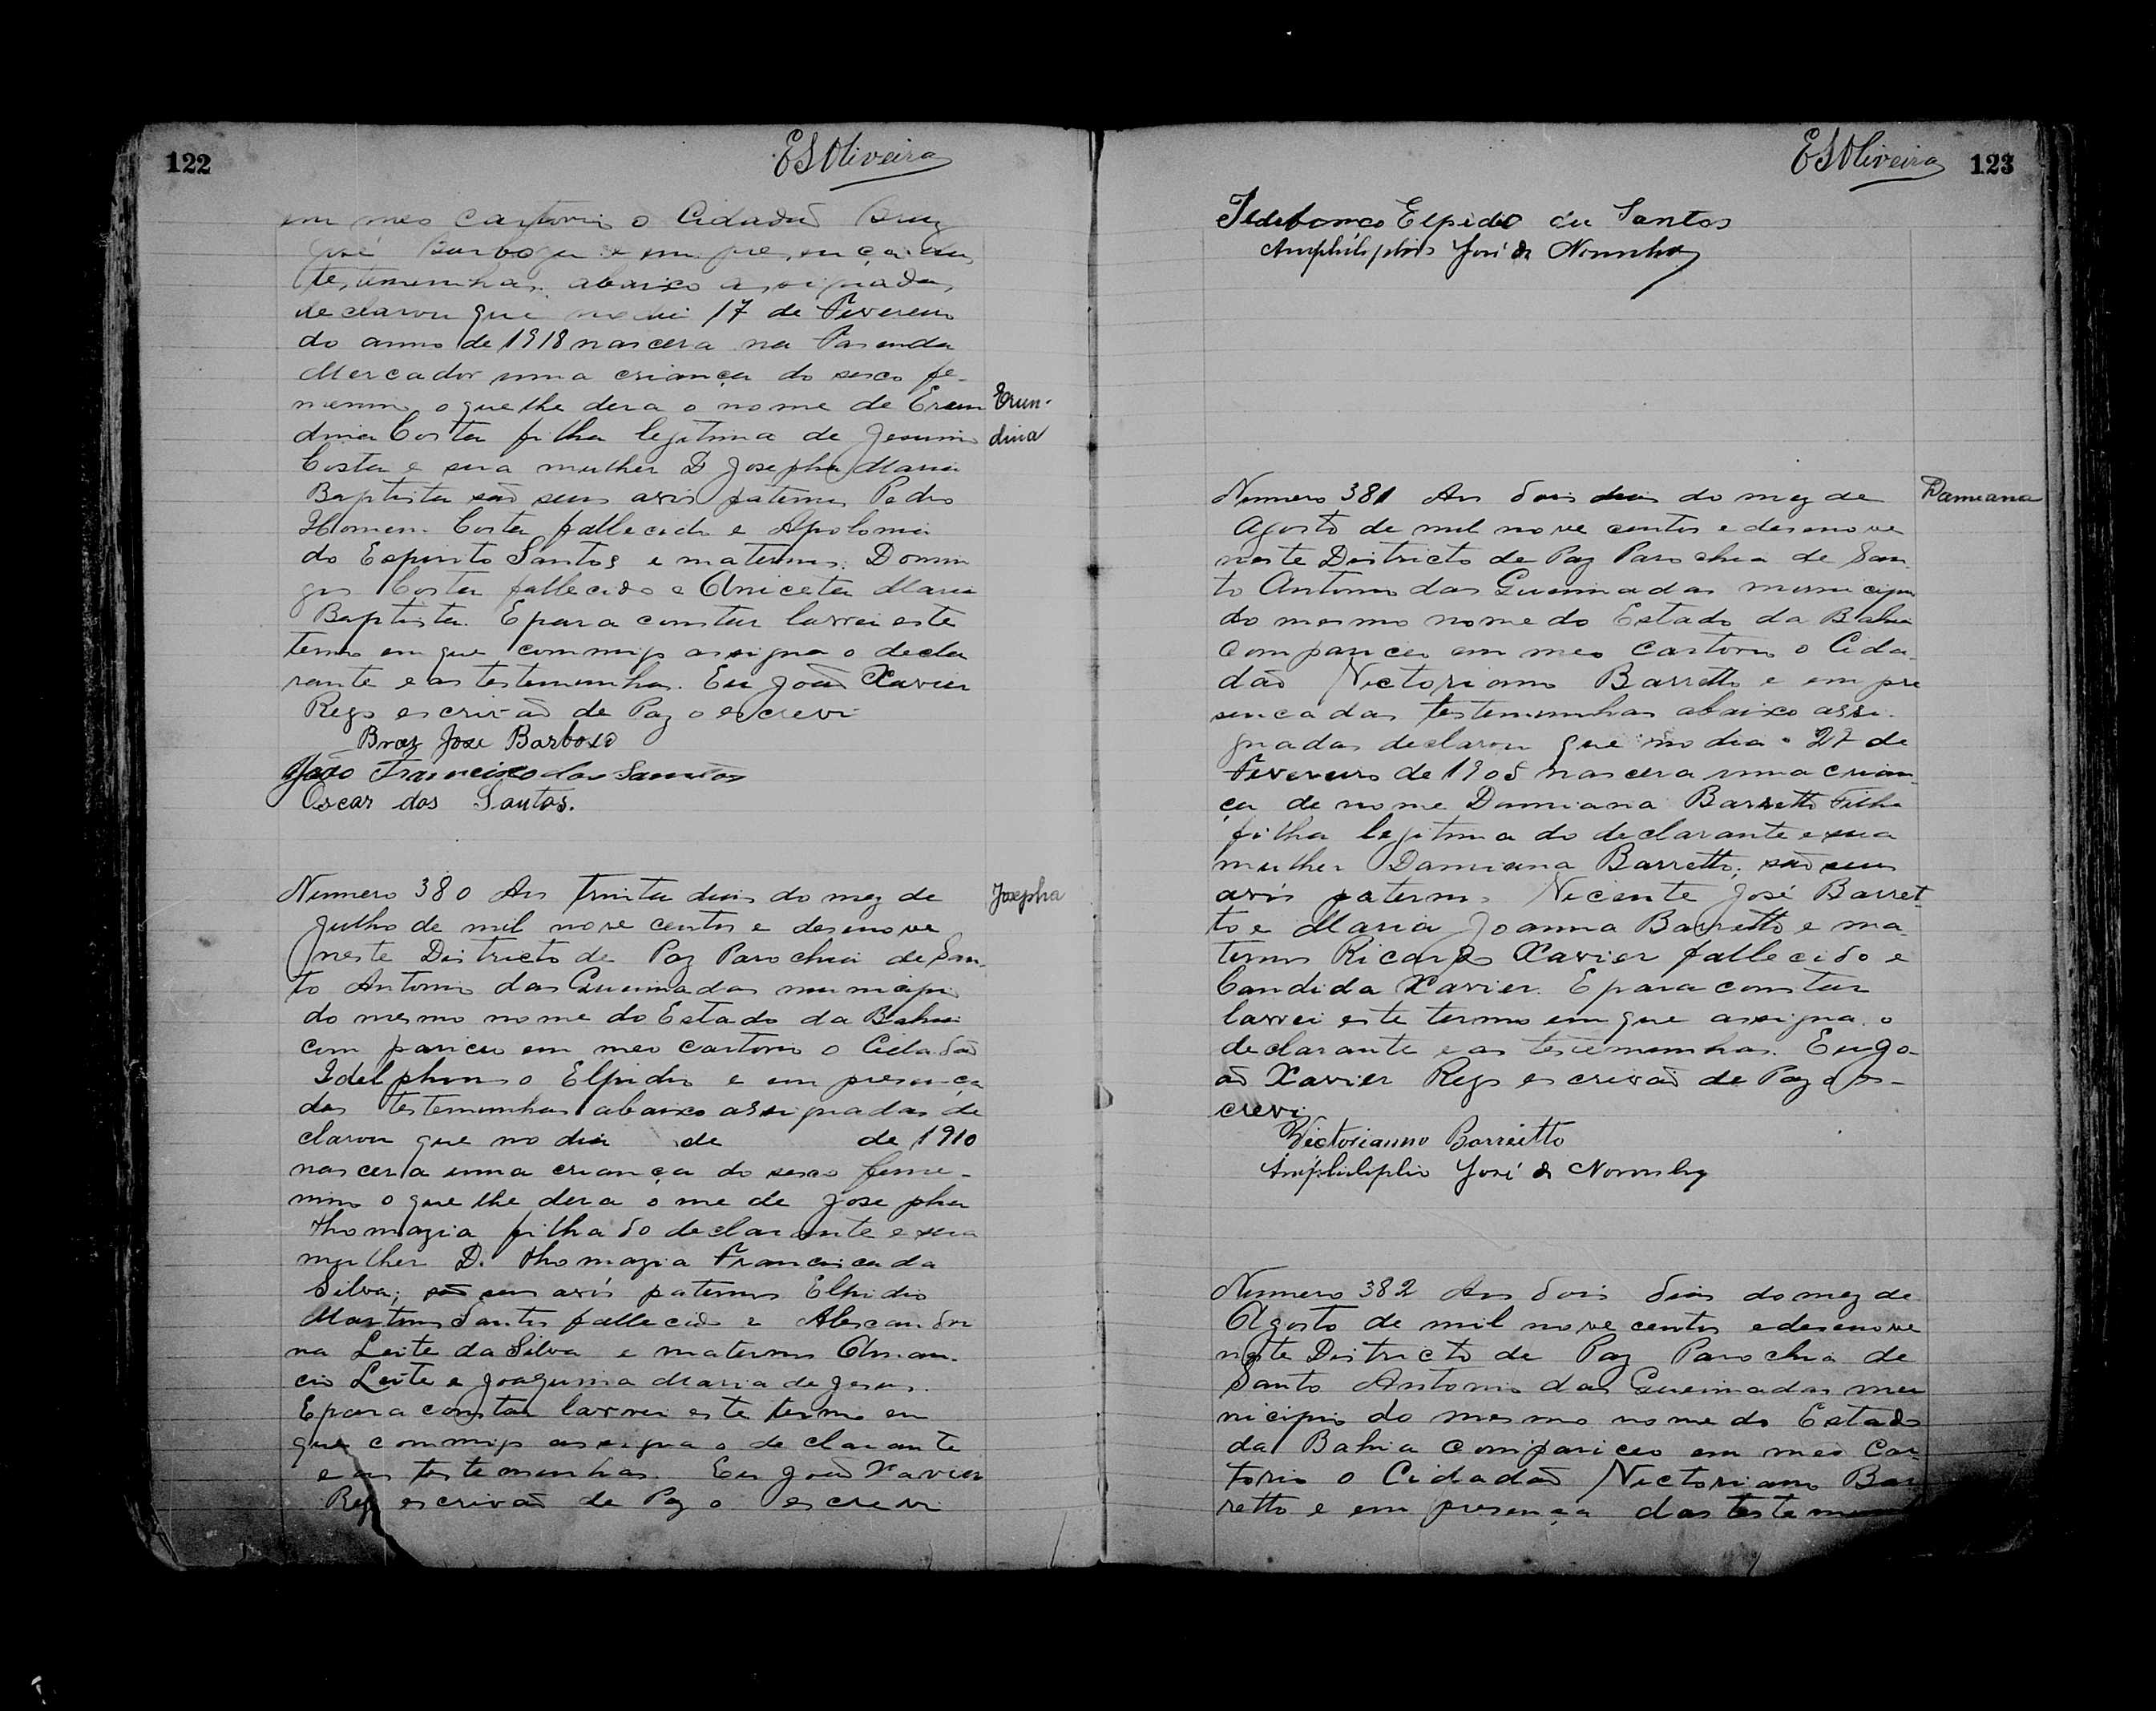 122
ESOliveira
em meo cartorio o Cidadão Braz
José Barboza e em presença das
testemunhas abaixo assignadas
declarou que no dia 17 de Fevereiro
do anno de 1918 nascera na Fasenda
Mercador uma criança do sexo fe-
menino o que lhe dera o nome de Erun
Erun-
dina Costa filha legitima de Jesuino
dina
Costa e sua mulher D Josepha Maria
Baptista são seus avós paternos Pedro
Homem Costa fallecido e Apolonia
do Espirito Santos e maternos Domin
gos Costa fallecido e Aniceta Maria
Baptista. E para constar lavrei este
termo em que commigo assigna o decla
rante e as testemunhas. Eu João Xavier
Rego escrivão de Paz o escrevi
Braz Jose Barboso
João Francisco dos Santos
Oscar dos Santos.
Numero 380 Aos trinta dias do mez de
Josepha
Julho de mil nove centos e desenove
neste Districto de Paz Parochia de San-
to Antonio das Queimadas municipio
do mesmo nome do Estado da Bahia
com pariceu em meo cartorio o Cidadão
Idelphonso Elpidio e em presença
das testemunhas abaixo assignadas de
clarou que no dia de de 1910
nascera uma criança do sexo feme-
nino o que lhe dera o me de Josepha
Thomazia filha do declarante e sua
mulher D. Thomazia Francisca da
Silva; são seus avós paternos Elpidio
Martins Santos fallecido e Alexandri
na Leite da Silva e maternos Aman-
cio Leite e Joaquina Maria de Jesus.
E para constar lavrei este termo em
que commigo assigna o declarante
e as testemunhas. Eu João Xavier
Rego escrivão de Paz o escrevi
ESOliveira
123
Ildefonço Elpidio du Santos
Amphilophio José de Noronha
Numero 381 Aos dois dias do mez de
Damiana
Agosto de mil nove centos e desenove
neste Districto de Paz Parochia de San
to Antonio das Queimadas municipio
do mesmo nome do Estado da Bahia
compariceu em meo cartorio o Cida-
dão Victoriano Barretto e em pre
senca das testemunhas abaixo assi-
gnadas declarou que no dia 27 de
Fevereiro de 1905 nascera uma crian-
ça de nome Damiana Barretto Filha
filha legitima do declarante e sua
mulher Damiana Barretto; são seus
avós paternos Vicente José Barret-
to e Maria Joanna Barretto e ma-
ternos Ricardo Xavier fallecido e
Candida Xavier. E para constar
lavrei este termo em que assigna o
declarante e as testemunhas. Eu Jo-
ão Xavier Rego escrivão de Paz o es-
crevi
Victorianno Barreitto
Amphilophio José de Noronha
Numero 382 Aos dois dias do mez de
Agosto de mil nove centos e desenove
neste Districto de Paz Parochia de
Santo Antonio das Queimadas mu
nicipio do mesmo nome do Estado
da Bahia compariceu em meo car-
torio o Cidadão Victoriano Bar
retto e em presença das testemunh